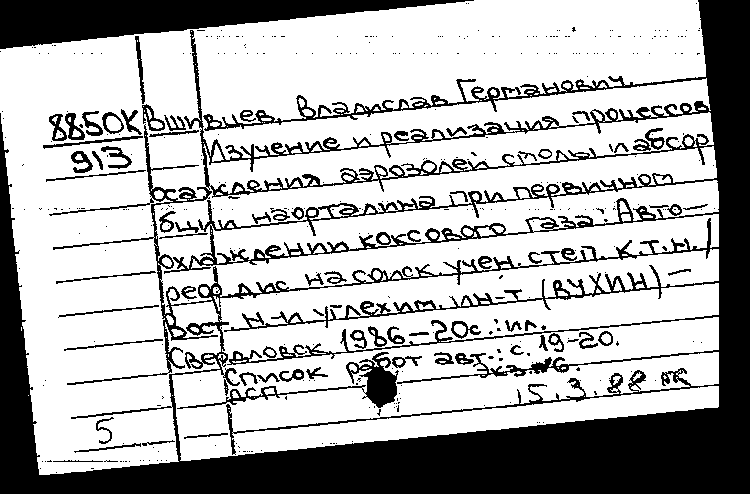 8850К Вшивцев, Владислав Германович.
913 Изучение и реализация процессов
осаждения аэрозолей смолы и абсор
бции нафталина при первичном
охлаждении коксового газа: Авто-
реф. дис. на соиск. учен. степ. к.т.н. /
Вост. н.-и. углехим. ин-т (ВУХИН) -
Свердловск, 1986.-20с.: ил.
Список работ авт.: с. 19-20.
ДСП. Экз. №6.
15.3.88
5